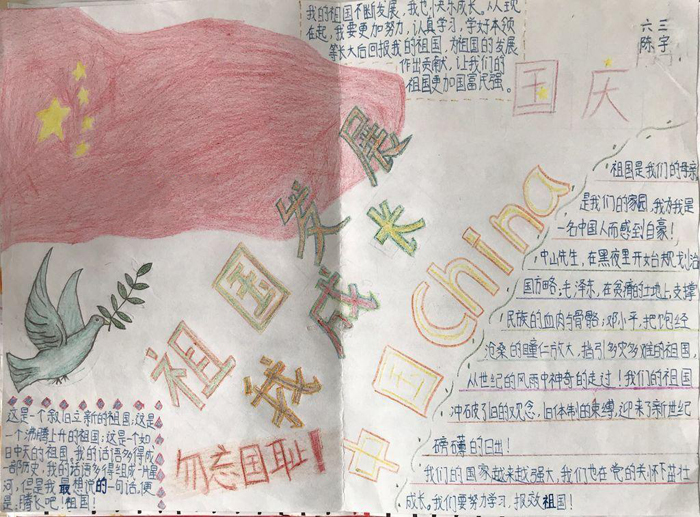 我的祖国不断发展，我也快乐成长。从现
在起，我要更加努力，认真学习，学好本领
等长大后回报我的祖国，为祖国的发展
作出贡献，让我们的
祖国更加国富民强。
六三
陈宇
国庆
祖国发展
我成长
中国China
祖国是我们的母亲
是我们的家园，我为我是
一名中国人而感到自豪！
中山先生，在黑夜里开始规划治
国方略，毛泽东，在贫瘠的土地上，支撑
民族的血肉与骨骼；邓小平，把饱经
沧桑的瞳仁放大，指引多灾多难的祖国，
从世纪的风雨中神奇的走过！我们的祖国
冲破了旧的观念，旧体制的束缚，迎来了新世纪
磅礴的日出！
我们的国家越来越强大，我们也在党的关怀下茁壮
成长。我们要努力学习，报效祖国！
这是一个叙旧立新的祖国；这是
一个沸腾上升的祖国；这是一个如
日中天的祖国。我的话语多得成
一部历史，我的话语多得组成一片星
河，但是我最想说的一句话，便
是：腾长吧！祖国！
勿忘国耻！